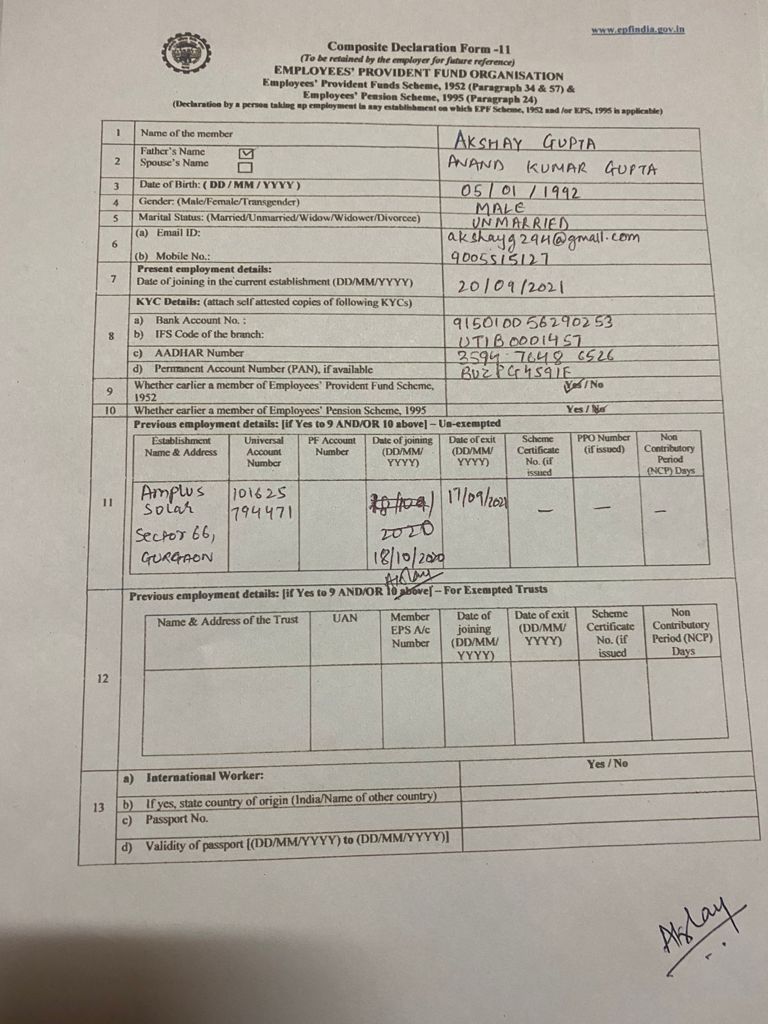 www.epfindia.gov.in
Composite Declaration Form -11
(To be retained by the employer for future reference)
EMPLOYEES' PROVIDENT FUND ORGANISATION
Employees' Provident Funds Scheme, 1952 (Paragraph 34 & 57) &
Employees' Pension Scheme, 1995 (Paragraph 24)
(Declaration by a person taking up employment in any establishment on which EPF Scheme, 1952 and /or EPS, 1995 is applicable)
1 Name of the member AKSHAY GUPTA
2 Father's Name ☑
Spouse's Name ☐ ANAND KUMAR GUPTA
3 Date of Birth: ( DD / MM / YYYY ) 05/01/1992
4 Gender: (Male/Female/Transgender) MALE
5 Marital Status: (Married/Unmarried/Widow/Widower/Divorcee) UNMARRIED
6 (a) Email ID: akshayg294@gmail.com
(b) Mobile No.: 9005515127
7 Present employment details:
Date of joining in the current establishment (DD/MM/YYYY) 20/09/2021
8 KYC Details: (attach self attested copies of following KYCs)
a) Bank Account No. : 915010056290253
b) IFS Code of the branch: UTIB0001457
c) AADHAR Number 3594 7648 6526
d) Permanent Account Number (PAN), if available BUZPG4591F
9 Whether earlier a member of Employees' Provident Fund Scheme, 1952 Yes / No
10 Whether earlier a member of Employees' Pension Scheme, 1995 Yes / No
11 Previous employment details: [if Yes to 9 AND/OR 10 above] – Un-exempted
Establishment Name & Address
Universal Account Number
PF Account Number
Date of joining (DD/MM/YYYY)
Date of exit (DD/MM/YYYY)
Scheme Certificate No. (if issued
PPO Number (if issued)
Non Contributory Period (NCP) Days
Amplus Solar Sector 66, GURGAON
101625 794471
2020
18/10/2020
Akslay
17/09/2021
–
–
–
12 Previous employment details: [if Yes to 9 AND/OR 10 above] – For Exempted Trusts
Name & Address of the Trust
UAN
Member EPS A/c Number
Date of joining (DD/MM/YYYY)
Date of exit (DD/MM/YYYY)
Scheme Certificate No. (if issued
Non Contributory Period (NCP) Days
13 a) International Worker: Yes / No
b) If yes, state country of origin (India/Name of other country)
c) Passport No.
d) Validity of passport [(DD/MM/YYYY) to (DD/MM/YYYY)]
Akslay